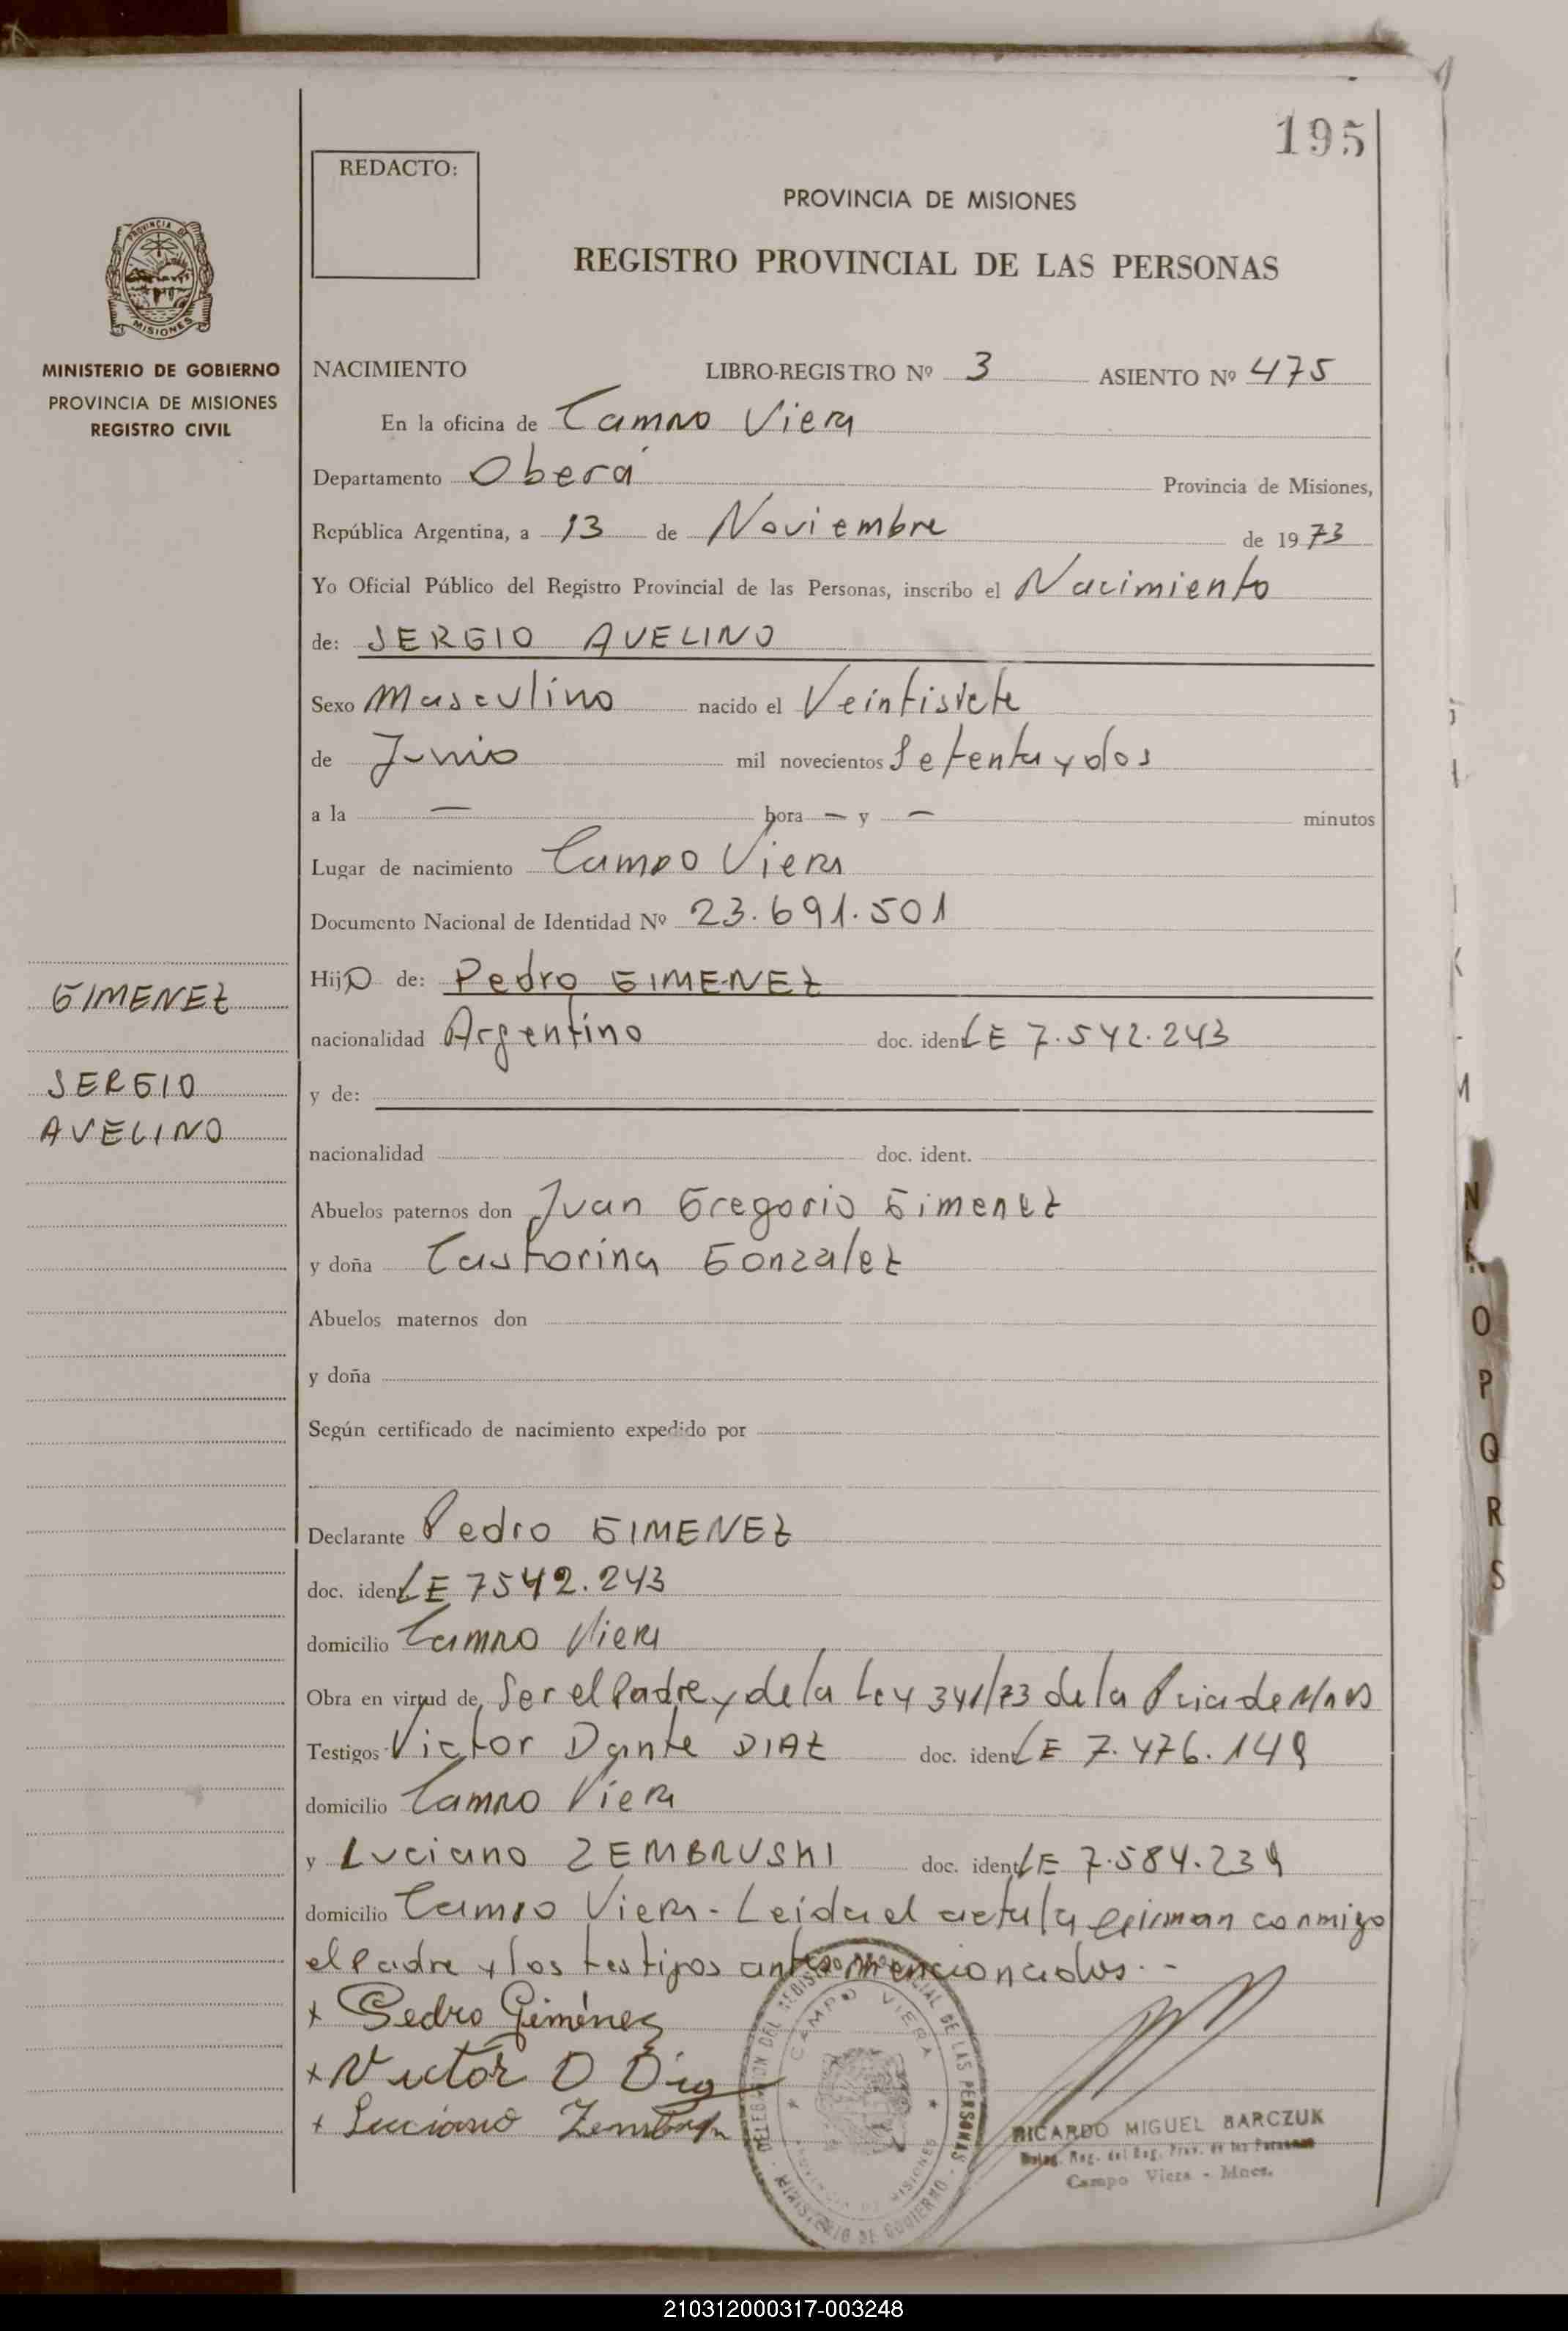 195
REDACTO:
PROVINCIA DE MISIONES
REGISTRO PROVINCIAL DE LAS PERSONAS
PROVINCIA DE
MISIONES
MINISTERIO DE GOBIERNO
PROVINCIA DE MISIONES
REGISTRO CIVIL
NACIMIENTO LIBRO-REGISTRO Nº 3 ASIENTO Nº 475
En la oficina de Campo Viera
Departamento Oberá Provincia de Misiones,
República Argentina, a 13 de Noviembre de 1973
Yo Oficial Público del Registro Provincial de las Personas, inscribo el Nacimiento
de: SERGIO AVELINO
Sexo Masculino nacido el Veintisiete
de Junio mil novecientos Setenta y dos
a la — hora — y — minutos
Lugar de nacimiento Campo Viera
Documento Nacional de Identidad Nº 23.691.501
Hijo de: Pedro GIMENEZ
GIMENEZ
nacionalidad Argentino doc. ident. LE 7.542.243
SERGIO
AVELINO
y de:
nacionalidad doc. ident.
Abuelos paternos don Juan Gregorio Gimenez
y doña Castorina Gonzalez
Abuelos maternos don
y doña
Según certificado de nacimiento expedido por
Declarante Pedro GIMENEZ
doc. ident. LE 7542.243
domicilio Campo Viera
Obra en virtud de Ser el Padre y de la Ley 341/73 de la Pcia de Mnes
Testigos Victor Dante DIAZ doc. ident. LE 7.476.149
domicilio Campo Viera
y Luciano ZEMBRUSKI doc. ident. LE 7.584.239
domicilio Campo Viera - Leida el acta la firman conmigo
el Padre y los testigos antes mencionados.-
x Pedro Giménez
x Victor D Diaz
x Luciano
DELEGACION DEL REGISTRO PROVINCIAL DE LAS PERSONAS
CAMPO VIERA
PROVINCIA DE MISIONES
MINISTERIO DE GOBIERNO
RICARDO MIGUEL BARCZUK
Deleg. Reg. del Reg. Prov. de las Personas
Campo Viera - Mnes.
M
N
O
P
Q
R
S
210312000317-003248